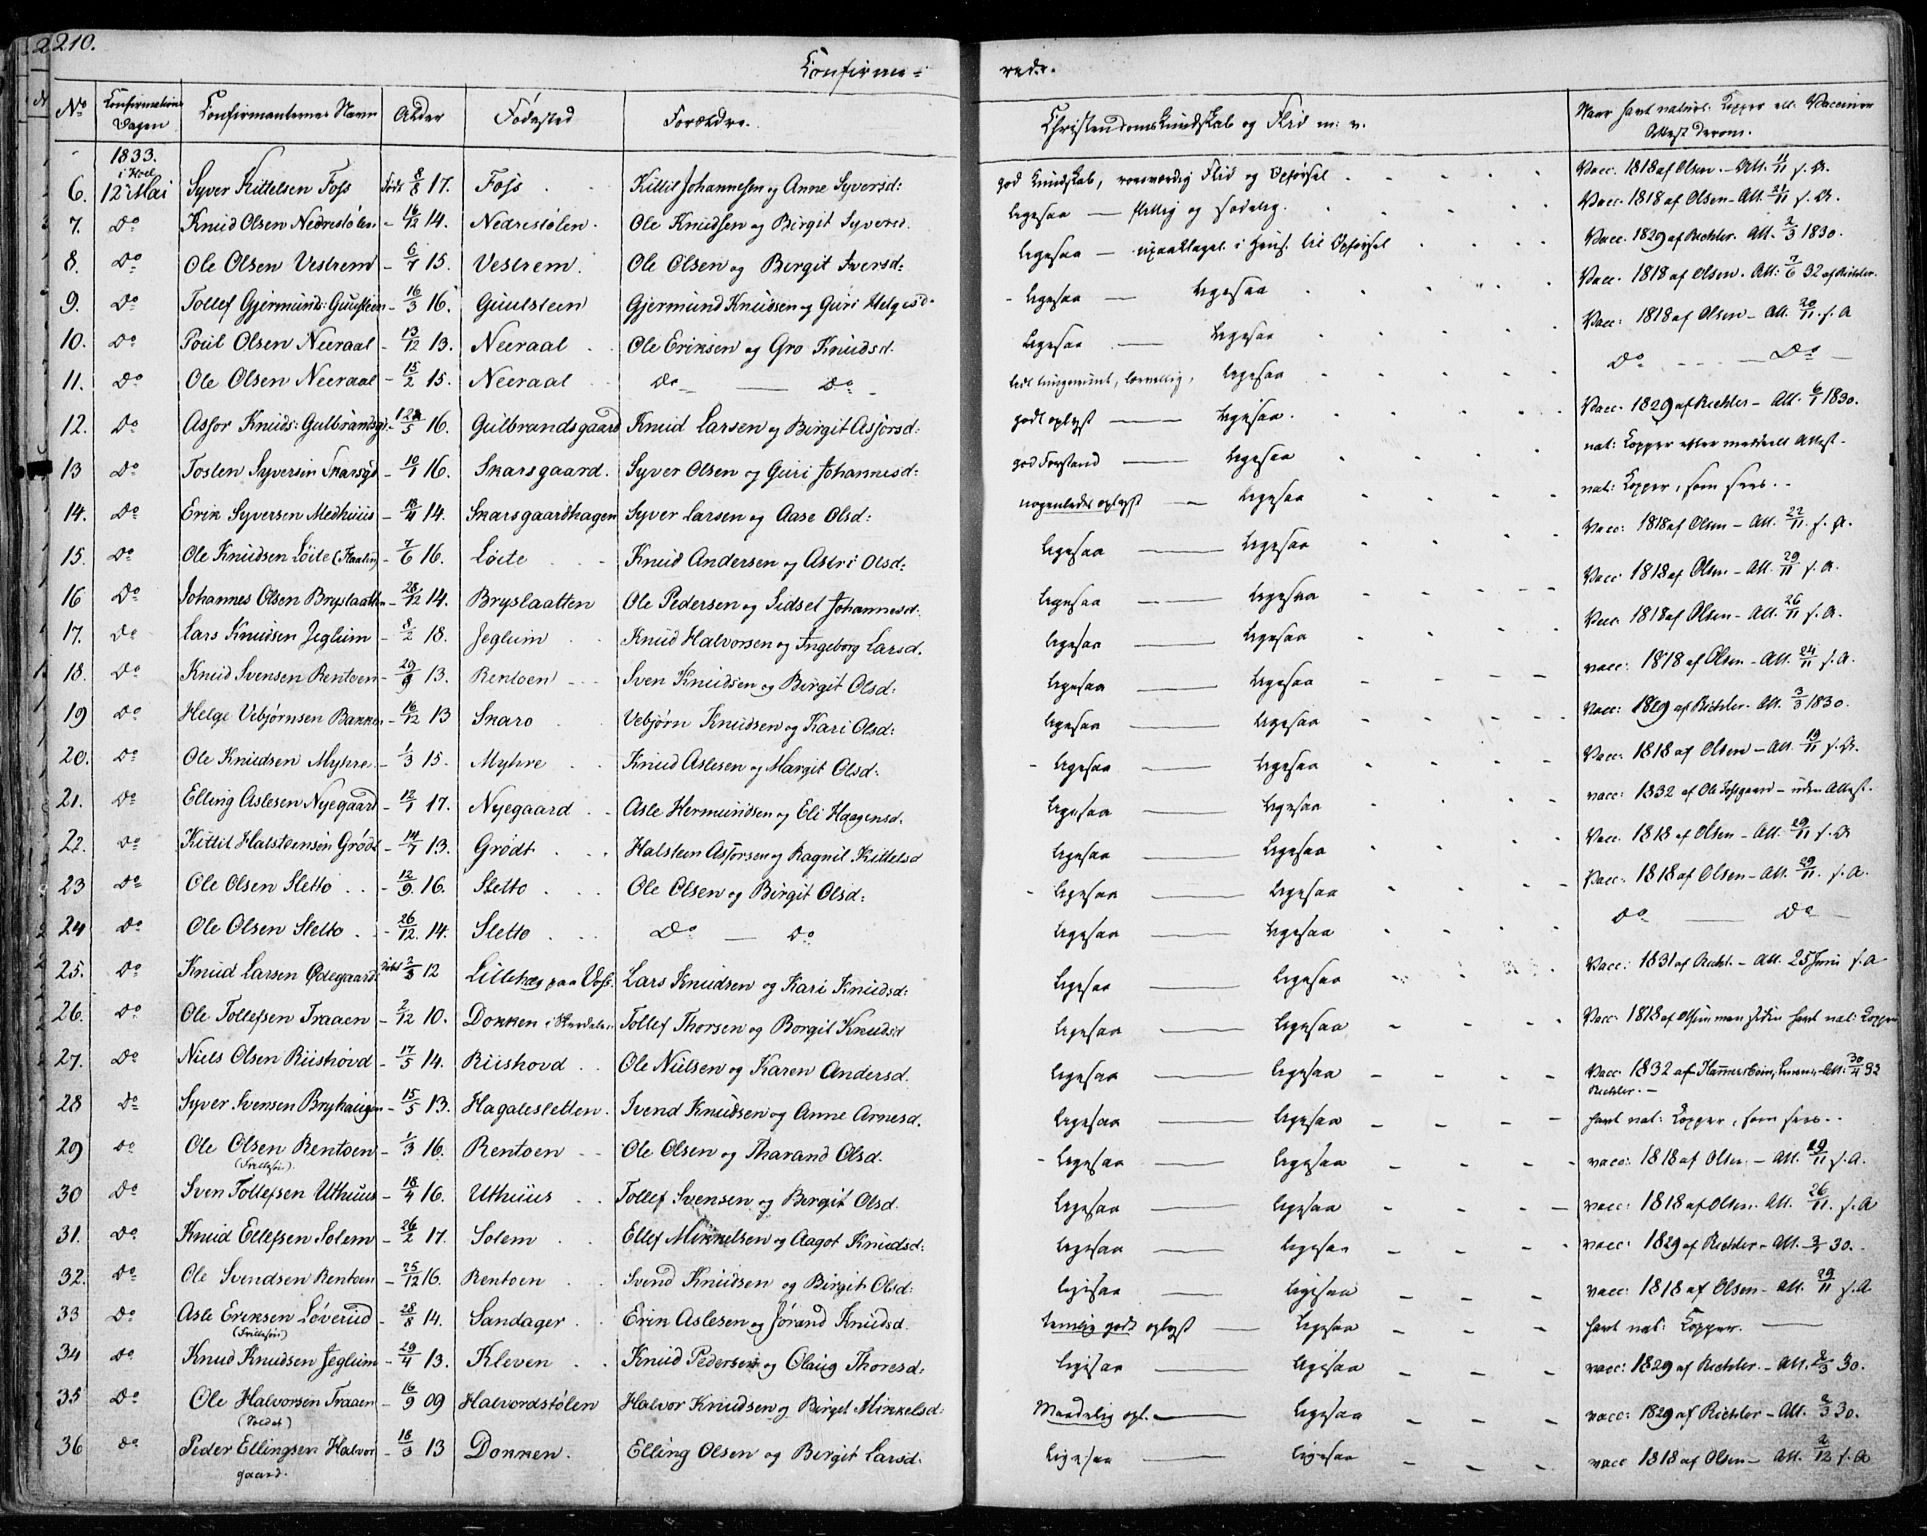 210.
Confirme- rede.
No Confirmations Dagen Confirmanternes Navn Alder Fødested Forældre. Christendomskundskab og Flid m: v. Naar havt naturl: Kopper ell. Vaccineret Attest derom.
1833.
i Hoel
6. 12 Mai Syver Kittelsen Foss Født 8/8 17. Foss Kittil Johannesen og Anne Syversd: god Kundskab, roesværdig Flid og Opførsel Vacc. 1818 af Olsen - Att. 11/11 s. A.
7. Do Knud Olsen Nedrestølen - 16/12 14. Nedrestølen. Ole Knudsen og Birgit Syversd. ligesaa — flittig og sædelig. Vacc. 1818 af Olsen - Att. 21/11 s. A.
8. Do Ole Olsen Vestrem - 6/7 15. Vestrem. Ole Olsen og Birgit Iversd: ligesaa — upaaklaget i Hens. til Opførsel Vacc. 1829 af Richter. Att. 2/3 1830.
9. Do Tollef Gjermunds: Guulsteen - 16/3 16. Guulsteen Gjermund Knudsen og Guri Helgesd. ligesaa — ligesaa Vacc. 1818 af Olsen. Att: 7/6 32 af Richter.
10. Do Poul Olsen Neeraal - 13/12 13. Neeraal Ole Eriksen og Gro Knudsd. ligesaa — ligesaa Vacc. 1818 af Olsen - Att. 20/11 s. A
11. Do Ole Olsen Neeraal - 15/2 15. Neeraal Do — Do ligesaa Do — Do
12. Do Asfor Knuds: Gulbrandsg: - 5 16. Gulbrandsgaard Knud Larsen og Birgit Asforsd: godt oplyst — ligesaa. Vacc. 1829 af Richter - Att. 6/1 1830.
13 Do Tosten Syversen Skarsgd - 10/1 16. Skarsgaard. Syver Olsen og Guri Johannesd: god Forstand — ligesaa nat: Kopper efter meddeelt Attest.
14. Do Erik Syversen Medhuus - 18/4 14. Skarsgaardhagen Syver Larsen og Aase Olsd: nogenledes oplyst — ligesaa nat: Kopper, som sees.
15. Do Ole Knudsen Løite - 7/6 16. Løite Knud Andersen og Astri Olsd: ligesaa — ligesaa Vacc: 1818 af Olsen - Att. 22/11 s. A.
16 Do Johannes Olsen Bryslaatten - 28/12 14. Bryslaatten Ole Pedersen og Sidsel Johannesd. ligesaa — ligesaa Vacc. 1818 af Olsen - Att. 29/11 s. A.
17. Do Lars Knudsen Jeglum - 8/2 18. Jeglum Knud Halvorsen og Ingeborg Larsd. ligesaa — ligesaa Vacc. 1818 af Olsen - Att. 26/11 s. A.
18. Do Knud Svensen Rentoen - 29/9 13. Rentoen Sven Knudsen og Birgit Olsd: ligesaa — ligesaa vacc: 1818 af Olsen - Att. 24/11 s. A.
19 Do Helge Vebjørnsen Bakken - 16/12 13 Skaro Vebjørn Knudsen og Kari Olsd: ligesaa — ligesaa Vacc: 1829 af Richter. Att. 3/3 1830.
20. Do Ole Knudsen Myhre - 1/3 15. Myhre Knud Aslesen og Margit Olsd: ligesaa — ligesaa Vacc: 1818 af Olsen - Att. 19/11 s. A.
21. Do Elling Aslesen Nyegaard - 12/1 17. Nyegaard Asle Hermundsen og Eli Haagensd. ligesaa — ligesaa vacc: 1832 af Ole - uden Attest.
22. Do Kittil Halsteensen Grødt - 14/7 13. Grødt Halsteen Asforsen og Ragnil Kittelsd ligesaa — ligesaa Vacc. 1818 af Olsen - Att. 29/11 s. A
23 Do Ole Olsen Sletto - 12/9 16. Sletto Ole Olsen og Birgit Olsd: ligesaa — ligesaa Vacc. 1818 af Olsen - Att. 29/11 s. A.
24 Do Ole Olsen Sletto - 26/12 14. Sletto Do — Do ligesaa — ligesaa Do — Do
25. Do Knud Larsen Ødegaard: Født 2/3 12 paa Voss. Lars Knudsen og Kari Knudsd: ligesaa — ligesaa Vacc: 1831 af Richt. - Att. 25 Juni s. A
26. Do Ole Tollefsen Traaen - 2/12 10. Dokken i Tollef Thorsen og Borgit Knudsd ligesaa — ligesaa Vacc: 1818 af Olsen men siden havt nat: Kopper
27. Do Niels Olsen Riishovd - 17/5 14. Riishovd Ole Nielsen og Karen Andersd. ligesaa — ligesaa Vacc: 1832 af - Att: 30/4 32
Richter. -
28 Do Syver Svensen Bryhaugen - 15/5 13. Hagaleslетten. Svend Knudsen og Anne Arnesd. ligesaa — ligesaa havt nat: Kopper, som sees.
29 do Ole Olsen Rentoen - 1/3 16. Rentoen Ole Olsen og Tharand Olsd. ligesaa — ligesaa vacc: 1818 af Olsen - Att. 19/11 s. A.
30 Do Sven Tollefsen Uthuus - 18/4 16. Uthuus Tollef Svensen og Birgit Olsd. ligesaa — ligesaa vacc: 1818 af Olsen. Att. 26/11. s. A
31. Do Knud Ellefsen Solem - 26/2 17. Solem Ellef Mikkelsen og Aagot Knudsd: ligesaa — ligesaa vacc: 1829 af Richter - Att. 30.
32. Do Ole Svendsen Rentoen - 25/12 16. Rentoen Svend Knudsen og Birgit Olsd: ligesaa — ligesaa vacc: 1818 af Olsen - Att. 29/11 s. A
33 Do Asle Eriksen Løverud - 28/8 14. Sandager Erik Aslesen og Jørand Knudsd. temlig godt oplyst — ligesaa havt nat: Kopper. —
34 do Knud Knudsen Jeglum - 29/4 13. Kleven Knud Pedersen og Olaug Thoresd: ligesaa — ligesaa vacc: 1829 af Richter. - Att. 2/3 30.
35 Do Ole Halvorsen Traaen - 16/9 09 Halvordstølen Halvor Knudsen og Birget Mikkelsd: Maadelig opl. — ligesaa vacc: 1829 af Richter - Att. 2/3 30.
(Soldat)
36 do Peder Ellingsen Halvor - 18/3 13 Dokken. Elling Olsen og Birgit Larsd: ligesaa — ligesaa vacc 1818 af Olsen - Att. 2/12 s. A
gaard.